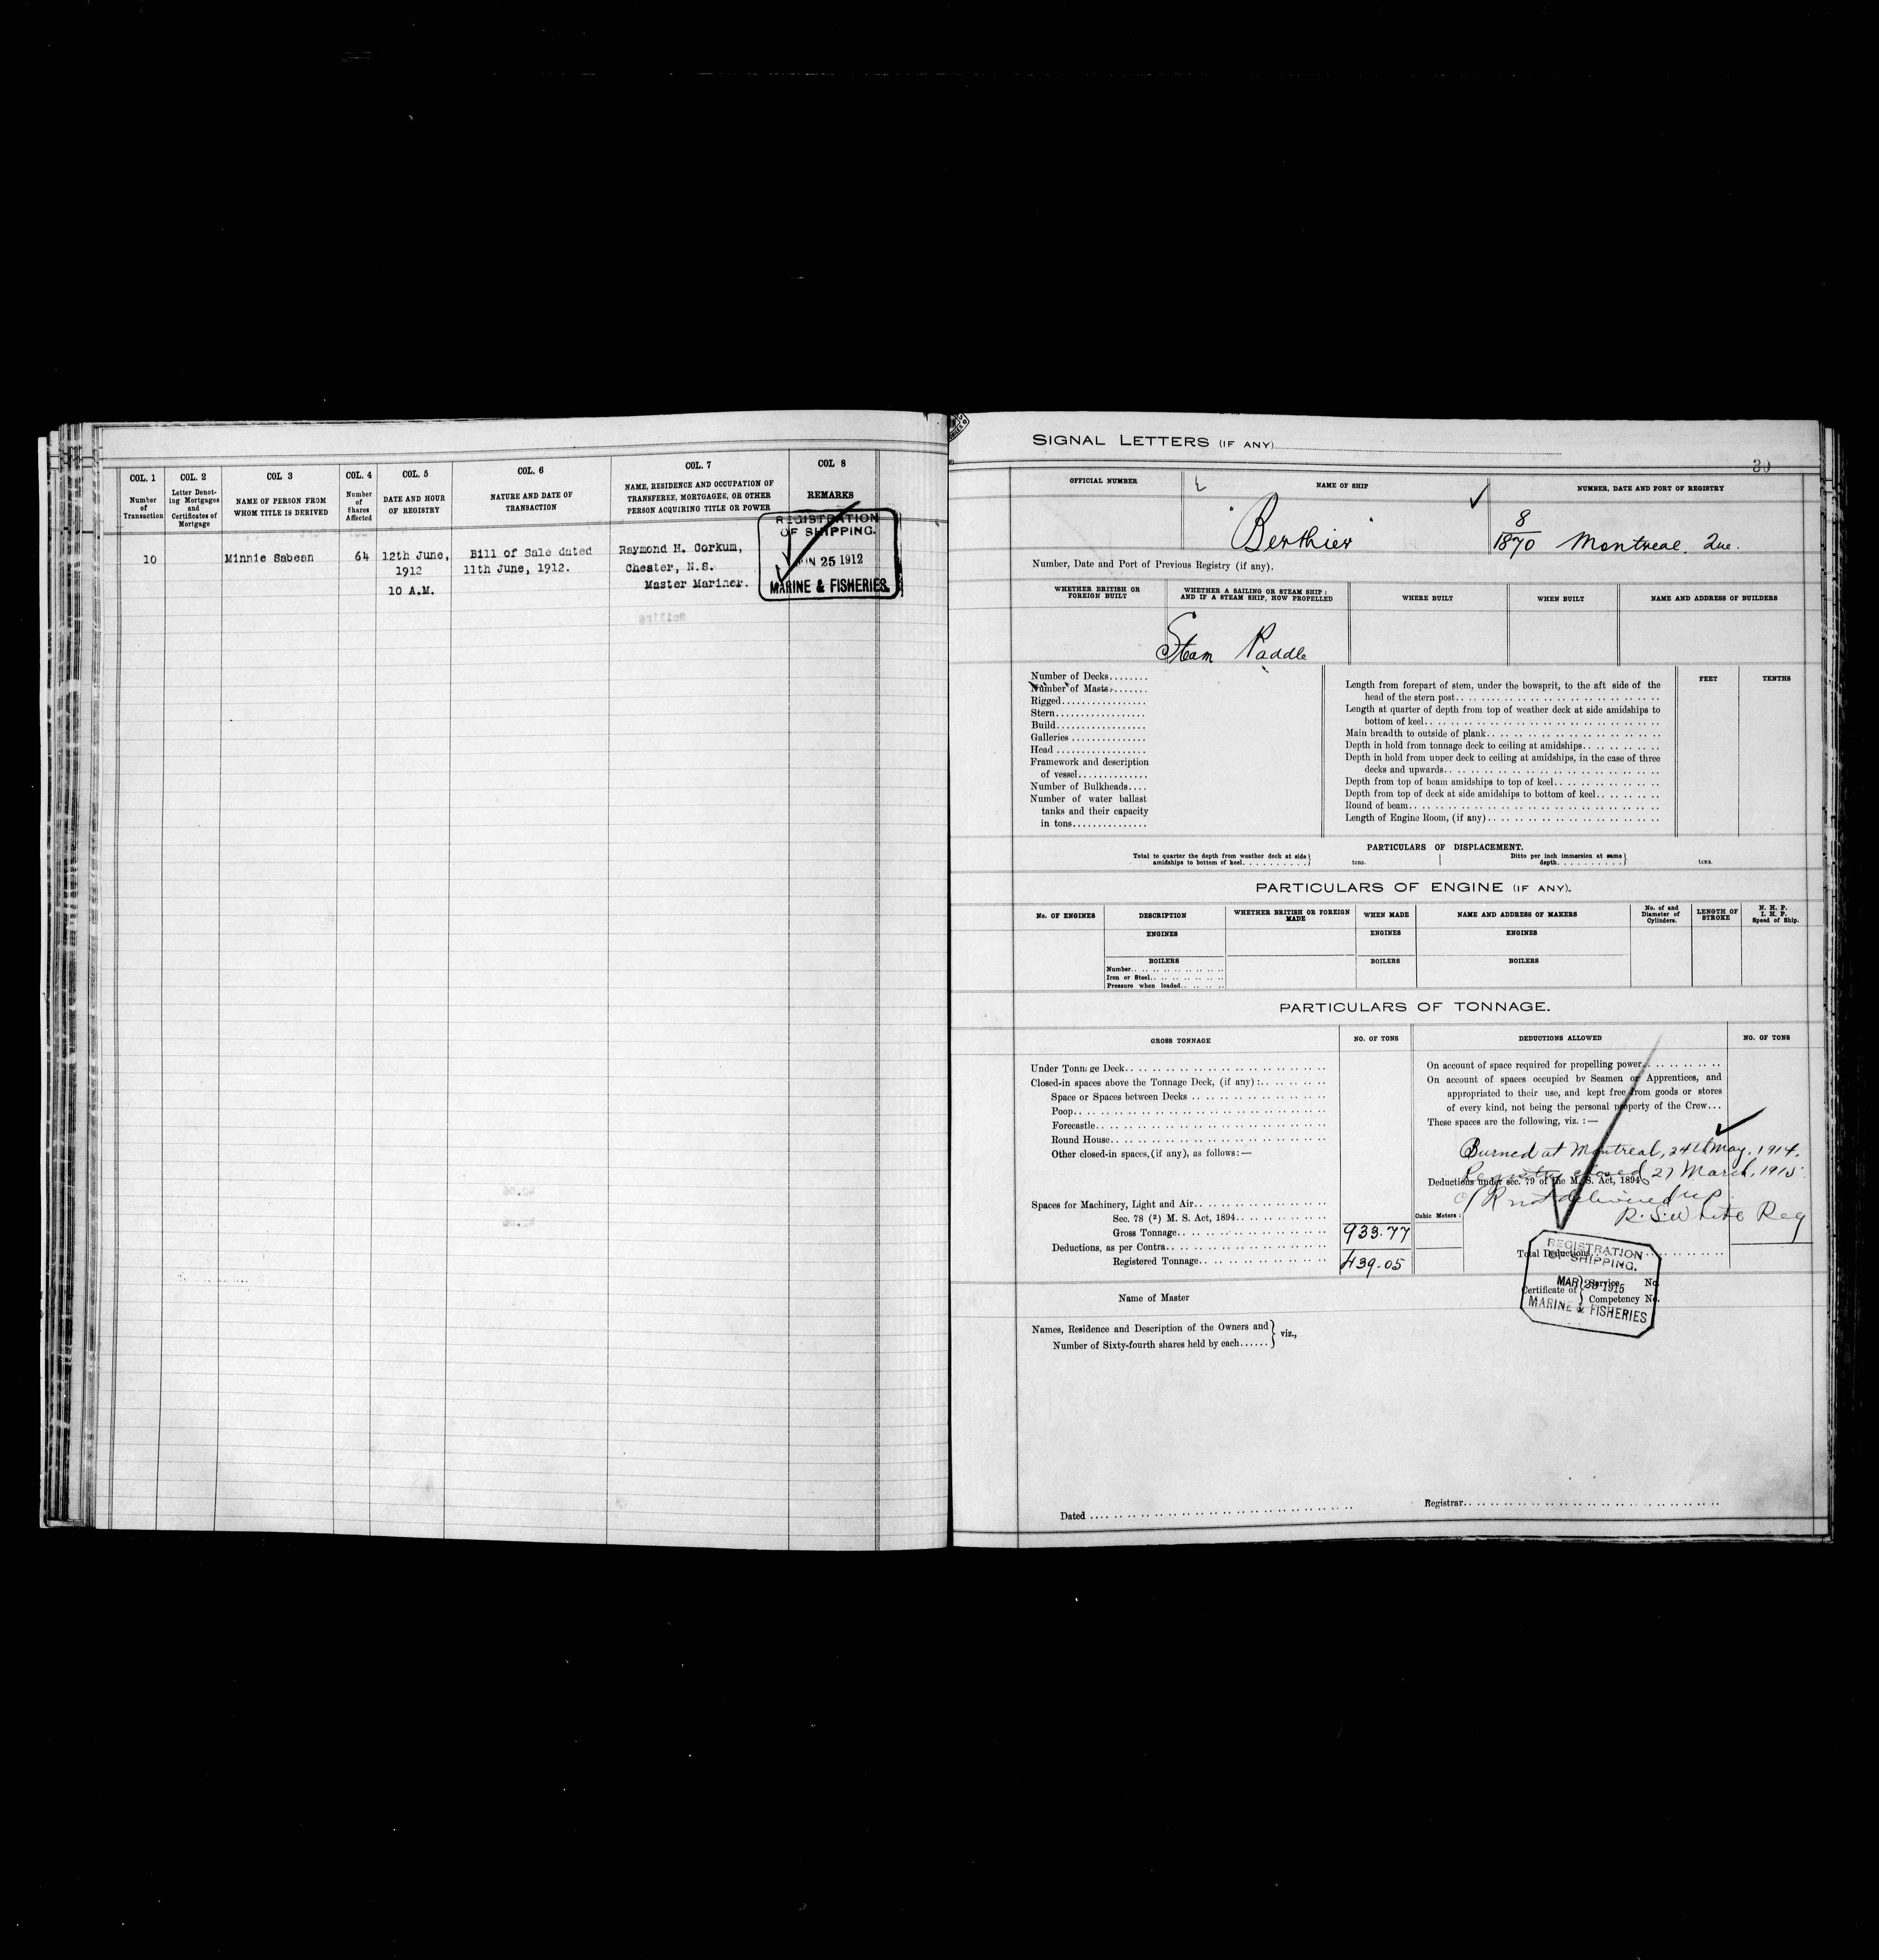 COL. 1
Number
of
Transaction
COL. 2
Letter Denot-
ing Mortgages
and
Certificates of
Mortgage
COL 3
NAME OF PERSON FROM
WHOM TITLE IS DERIVED
COL. 4
Number
of
Shares
Affected
COL. 5
DATE AND HOUR
OF REGISTRY
COL. 6
NATURE AND DATE OF
TRANSACTION
COL. 7
NAME, RESIDENCE AND OCCUPATION OF
TRANSFEREE, MORTGAGEE, OR OTHER
PERSON ACQUIRING TITLE OR POWER
COL 8
REMARKS
10
Minnie Sabean
64
12th June,
1912
10 A.M.
Bill of Sale dated
11th June, 1912.
Raymond H. Corkum,
Chester, N.S.
Master Mariner.
REGISTRATION
OF SHIPPING.
JUN 25 1912
MARINE & FISHERIES.
SIGNAL LETTERS (IF ANY)
30
OFFICIAL NUMBER
NAME OF SHIP
NUMBER, DATE AND PORT OF REGISTRY
"Berthier"
8
1870 Montreal. Que.
Number, Date and Port of Previous Registry (if any).
WHETHER BRITISH OR
FOREIGN BUILT
WHETHER A SAILING OR STEAM SHIP;
AND IF A STEAM SHIP, HOW PROPELLED
WHERE BUILT
WHEN BUILT
NAME AND ADDRESS OF BUILDERS
Steam Paddle
Number of Decks
Number of Masts
Rigged
Stern
Build
Galleries
Head
Framework and description
of vessel
Number of Bulkheads
Number of water ballast
tanks and their capacity
in tons
FEET
TENTHS
Length from forepart of stem, under the bowsprit, to the aft side of the
head of the stern post
Length at quarter of depth from top of weather deck at side amidships to
bottom of keel
Main breadth to outside of plank
Depth in hold from tonnage deck to ceiling at amidships
Depth in hold from upper deck to ceiling at amidships, in the case of three
decks and upwards
Depth from top of beam amidships to top of keel
Depth from top of deck at side amidships to bottom of keel
Round of beam
Length of Engine Room, (if any)
PARTICULARS OF DISPLACEMENT.
Total to quarter the depth from weather deck at side
amidships to bottom of keel
tons.
Ditto per inch immersion at same
depth
tons.
PARTICULARS OF ENGINE (IF ANY).
No. OF ENGINES
DESCRIPTION
WHETHER BRITISH OR FOREIGN
MADE
WHEN MADE
NAME AND ADDRESS OF MAKERS
No. of and
Diameter of
Cylinders.
LENGTH OF
STROKE
N. H. P.
I. H. P.
Speed of Ship.
ENGINES
ENGINES
ENGINES
BOILERS
BOILERS
BOILERS
Number
Iron or Steel
Pressure when loaded
PARTICULARS OF TONNAGE.
GROSS TONNAGE
NO. OF TONS
DEDUCTIONS ALLOWED
NO. OF TONS
Under Tonnage Deck
Closed-in spaces above the Tonnage Deck, (if any):
Space or Spaces between Decks
Poop
Forecastle
Round House
Other closed-in spaces, (if any), as follows:—
Spaces for Machinery, Light and Air
Sec. 78 (2) M. S. Act, 1894
Gross Tonnage
933.77
Deductions, as per Contra
Registered Tonnage
439.05
On account of space required for propelling power
On account of spaces occupied by Seamen or Apprentices, and
appropriated to their use, and kept free from goods or stores
of every kind, not being the personal property of the Crew
These spaces are the following, viz.:—
Burned at Montreal, 24th May, 1914.
Registry closed 27 March, 1915.
Deductions under sec. 79 of the M. S. Act, 1894
C/R not delivered up
Cubic Meters:
R. S. White Reg
Total Deductions
REGISTRATION
OF SHIPPING.
MAR 29 1915
MARINE & FISHERIES
Name of Master
Certificate of
Service No.
Competency No.
Names, Residence and Description of the Owners and
Number of Sixty-fourth shares held by each
viz.,
Dated
Registrar